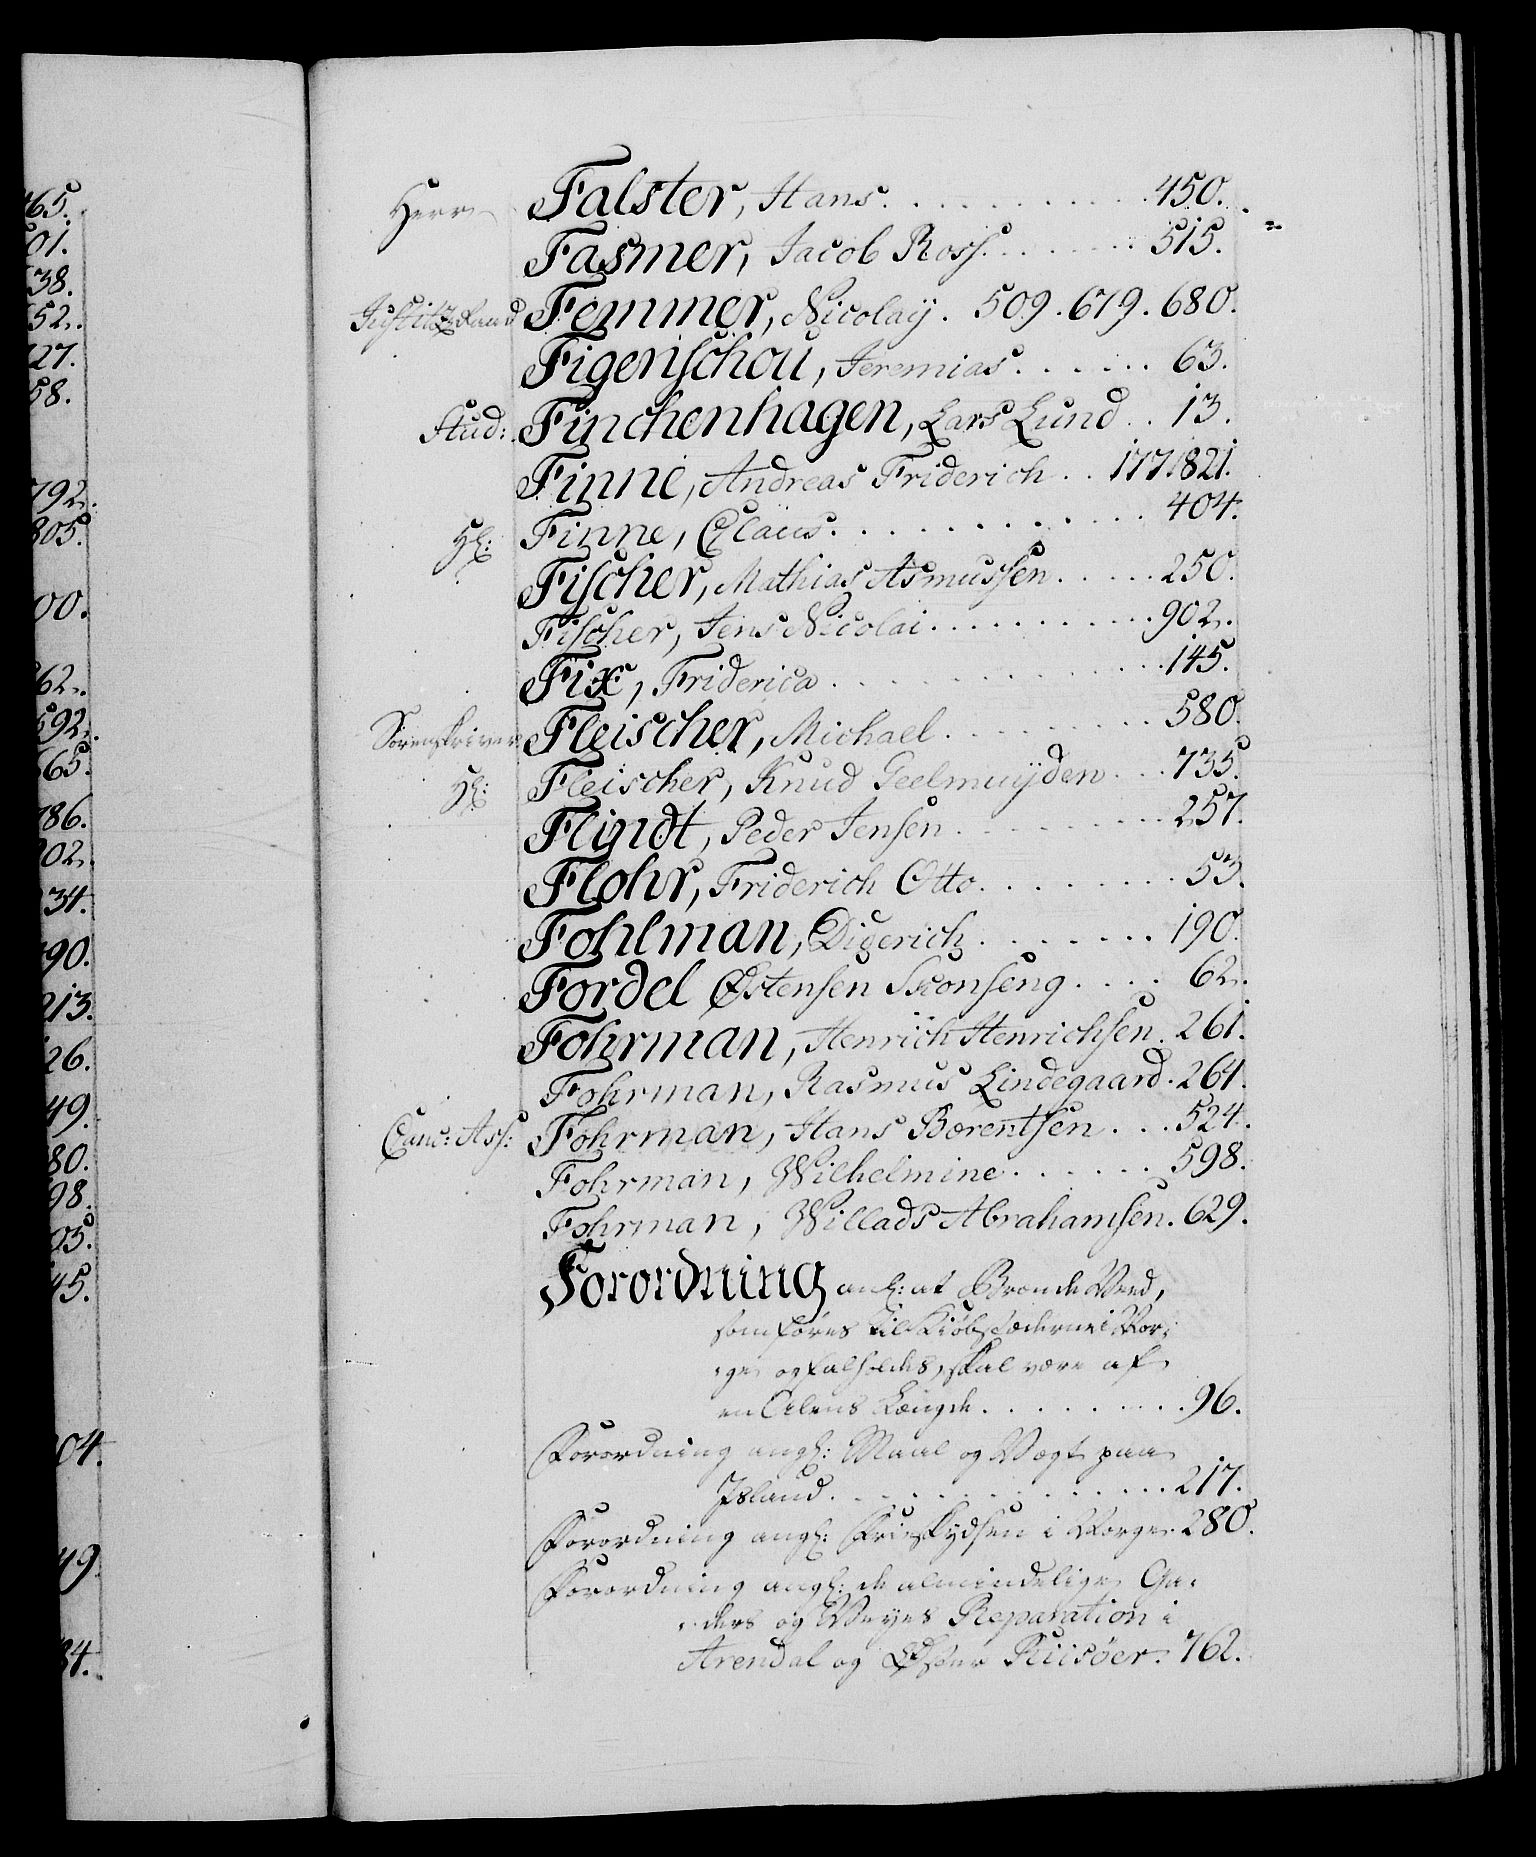 465.
501.
38.
52.
127.
58.
792.
805.
00.
62.
592.
665.
786.
902.
34.
90.
213.
26.
49.
80.
98.
05.
45.
04.
49
34.
Herr Falster, Hans . . . . . . . . . . 450.
Fasmer, Jacob Ross . . . . . . 515.
Justitz Raad Femmer, Nicolaÿ . 509 . 679 . 680.
Figenschou, Jeremias . . . . . . 63.
Stud: Finchenhagen, Lars Lund . . 13.
Finne, Andreas Friderich . . 177. 821.
Hr: Finne, Claus . . . . . . . . . . . 404.
Fischer, Mathias Asmussen . . . . . 250.
Fischer, Jens Nicolai . . . . . . . . . . 902.
Fix, Friderica . . . . . . . . . . . . 145.
Sorenskriver Fleischer, Michael . . . . . . . . 580.
Hr: Fleischer, Knud Geelmuyden . . . 735.
Flindt, Peder Jensen . . . . . . . . 257.
Flohr, Friderich Otto . . . . . . . . . 53.
Fohlman, Diderich . . . . . . . . 190.
Fordel Østensen Skonseng . . . . 62.
Fohrman, Henrich Henrichsen . 261.
Fohrman, Rasmus Lindegaard . 264.
Canc: Ass: Fohrman, Hans Børentsen . . . 524.
Fohrman, Wilhelmine . . . . . . 598.
Fohrman, Willads Abrahamsen . 629.
Forordning anl: at Brænde Veed,
som føres til Kiøbstæderne i Nor-
ge og falholdes, skal være af
en Alens Længde . . . . . . . . . 96.
Forordning angl: Maal og Vægt paa
Island . . . . . . . . . . . . . . 217.
Forordning angl: Frieskydsen i Norge . 280.
Forordning angl: de almindelige Ga-
ders og Veyes Reparation i
Arendal og Øster Riisöer . 762.